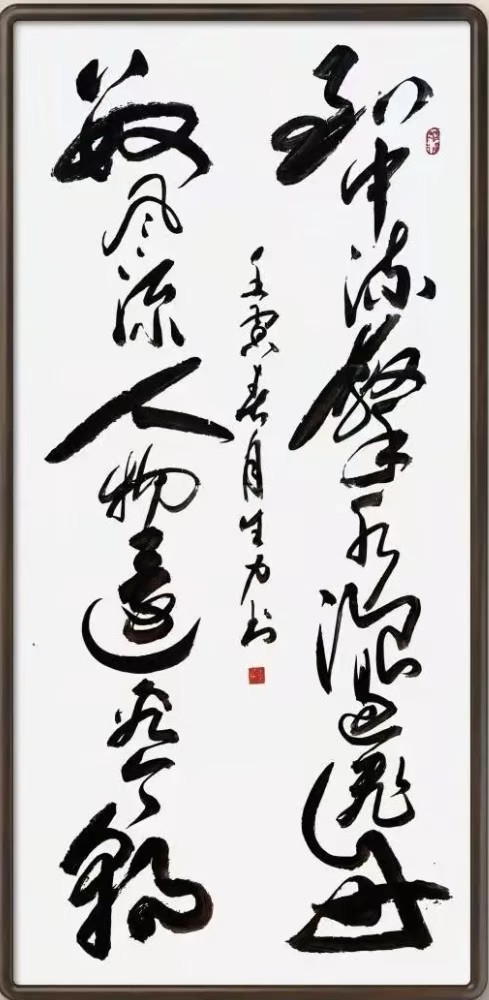 到中流擊水浪遏飛舟
數風流人物還看今朝
壬寅春月生力书